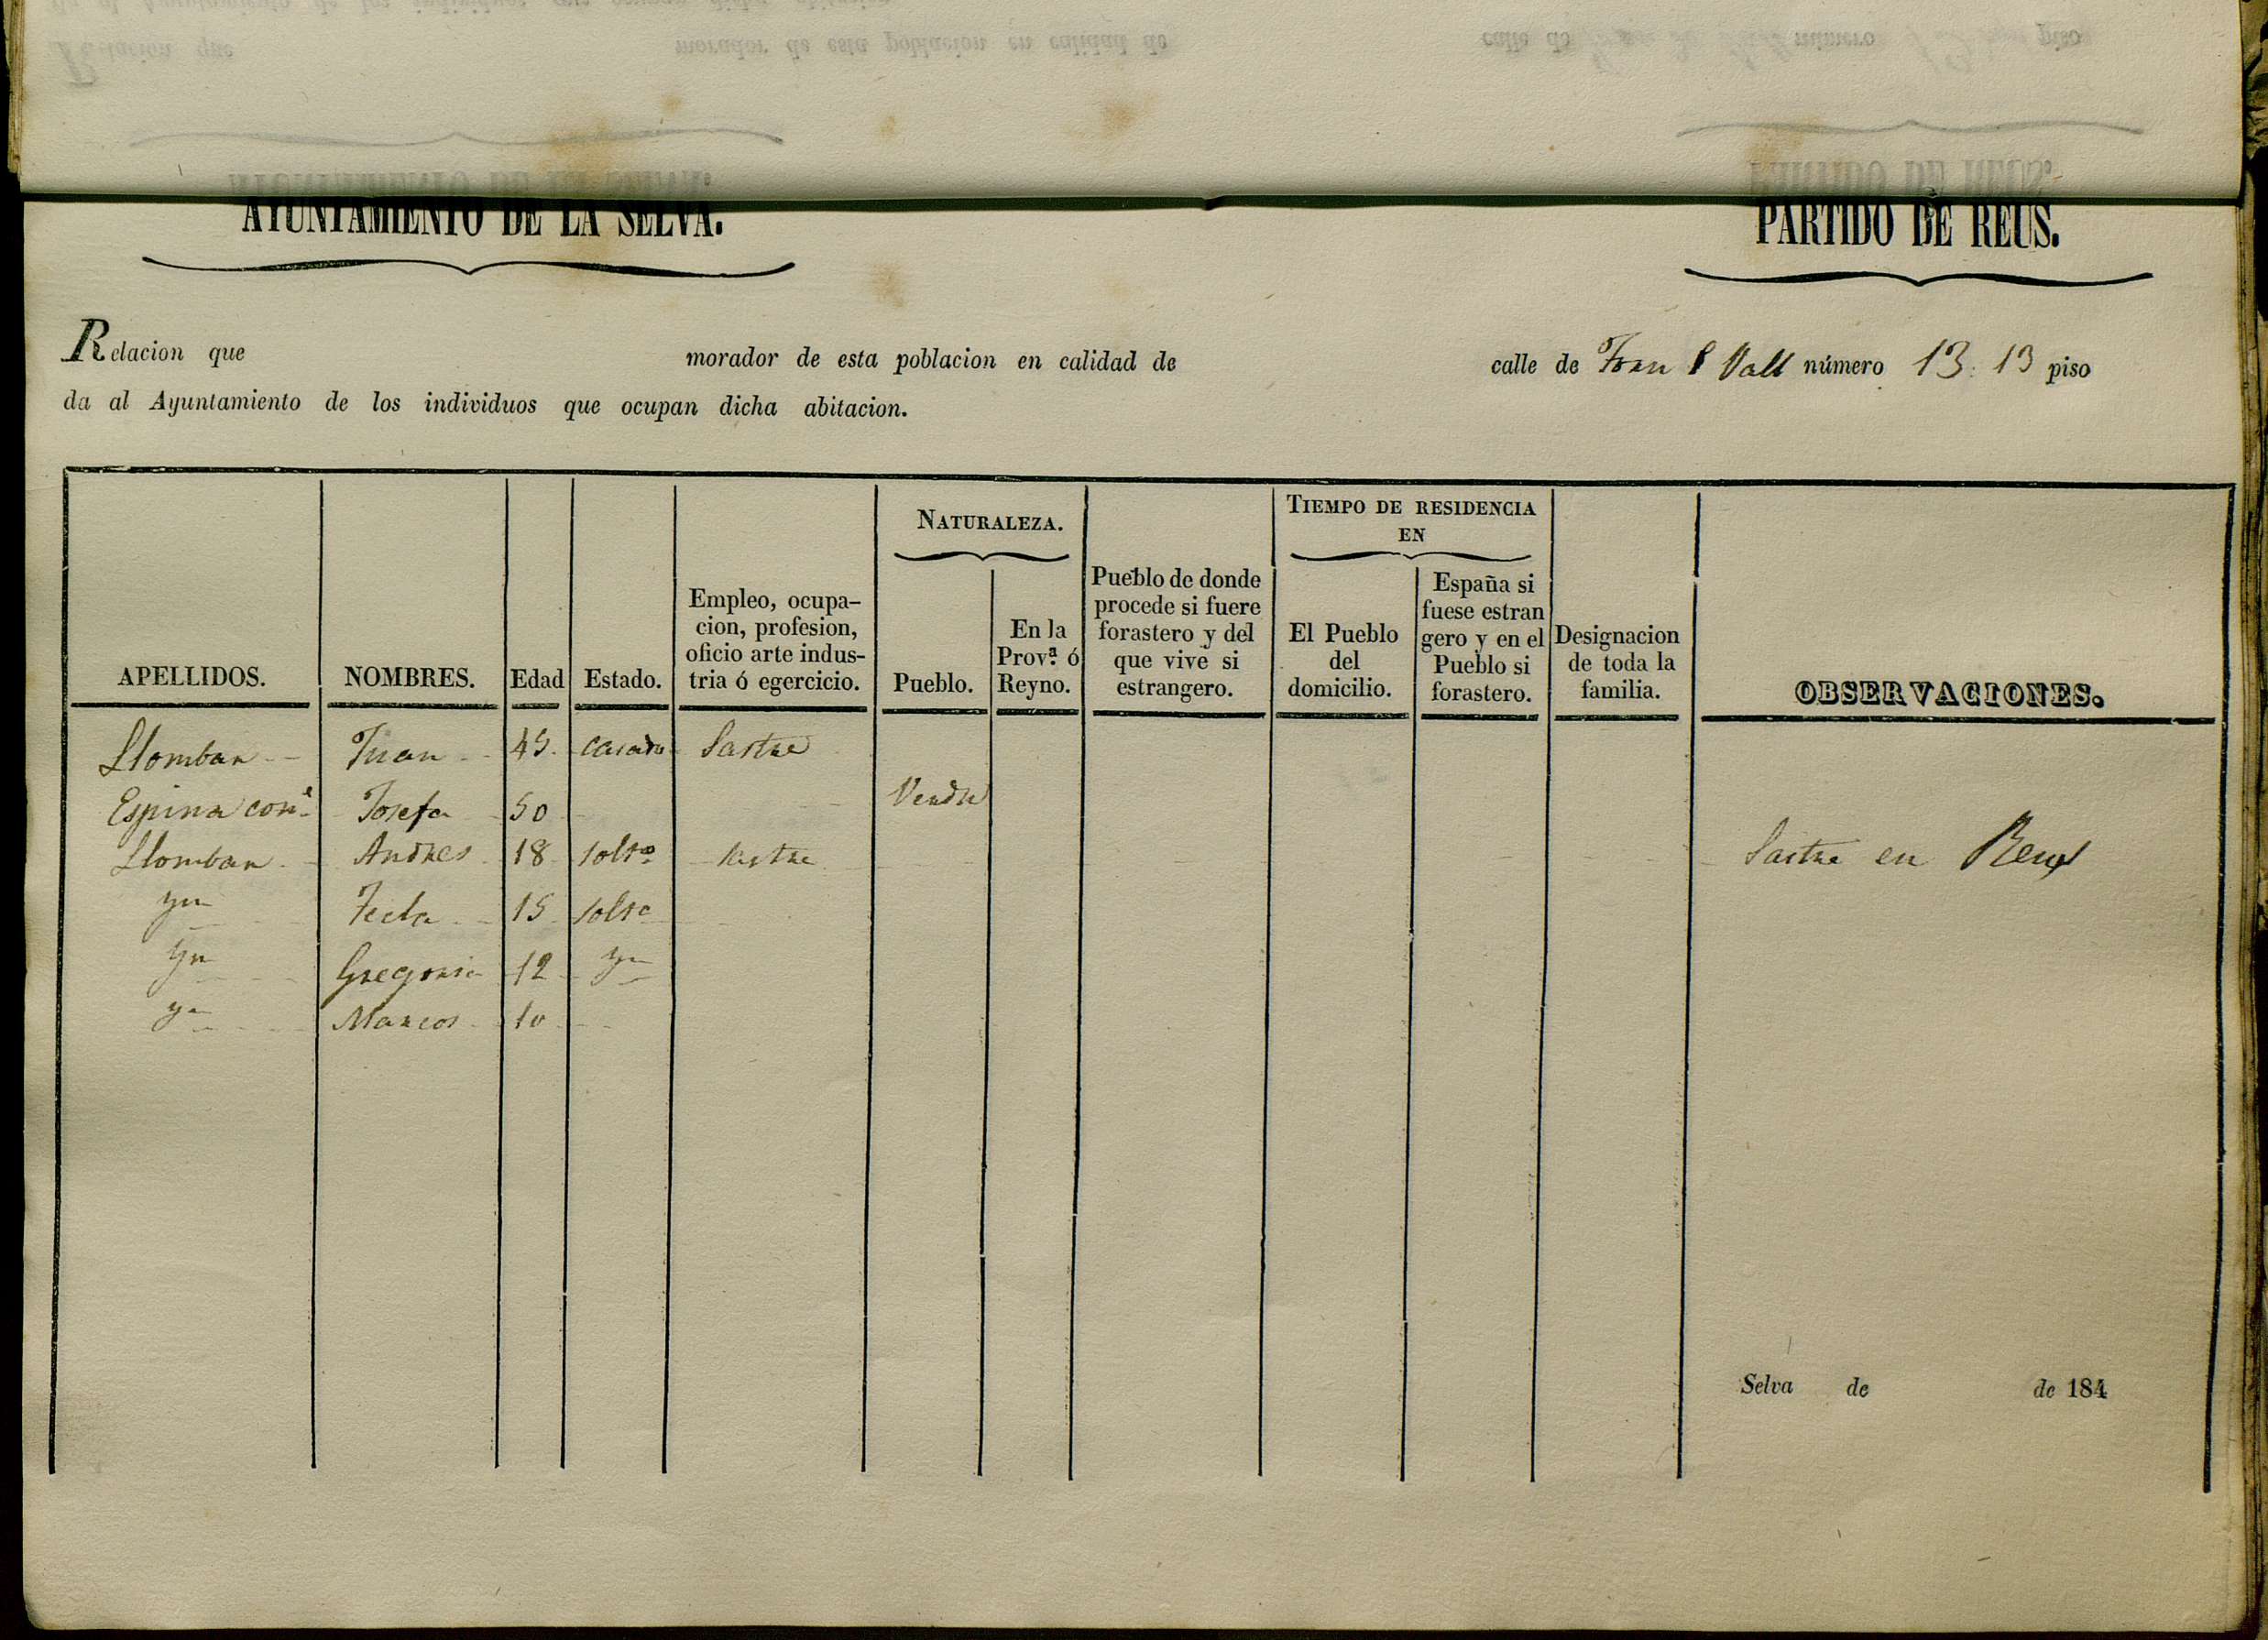 AYUNTAMIENTO DE LA SELVA.
PARTIDO DE REUS.
Relacion que morador de esta poblacion en calidad de calle de Vall número 13. 13 piso
da al Ayuntamiento de los individuos que ocupan dicha abitacion.
APELLIDOS.
NOMBRES.
Edad
Estado.
Empleo, ocupa-
cion, profesion,
oficio arte indus-
tria ó egercicio.
NATURALEZA.
Pueblo.
En la
Prov.ª ó
Reyno.
Pueblo de donde
procede si fuere
forastero y del
que vive si
estrangero.
TIEMPO DE RESIDENCIA
EN
El Pueblo
del
domicilio.
España si
fuese estran
gero y en el
Pueblo si
forastero.
Designacion
de toda la
familia.
OBSERVACIONES.
Llombar Juan 45 casado Sastre
Espina con.e Josefa 50 Vendre
Llombar Andres 18 solt.o sastre Sastre en Reus
yn Tecla 15 solt.a
yn Gregoria 12 yn
yn Marcos 10
Selva de de 184